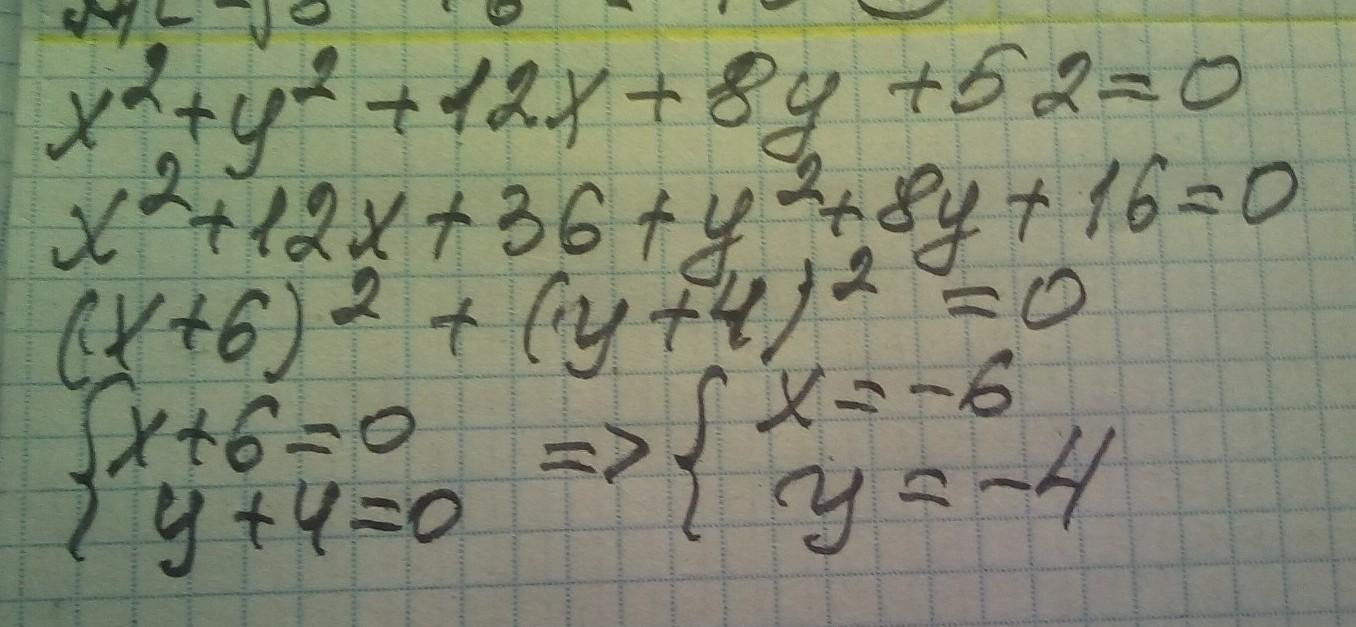 x² + y² + 12x + 8y + 52 = 0
x² + 12x + 36 + y² + 8y + 16 = 0
(x + 6)² + (y + 4)² = 0
{ x + 6 = 0 => { x = -6
{ y + 4 = 0 { y = -4